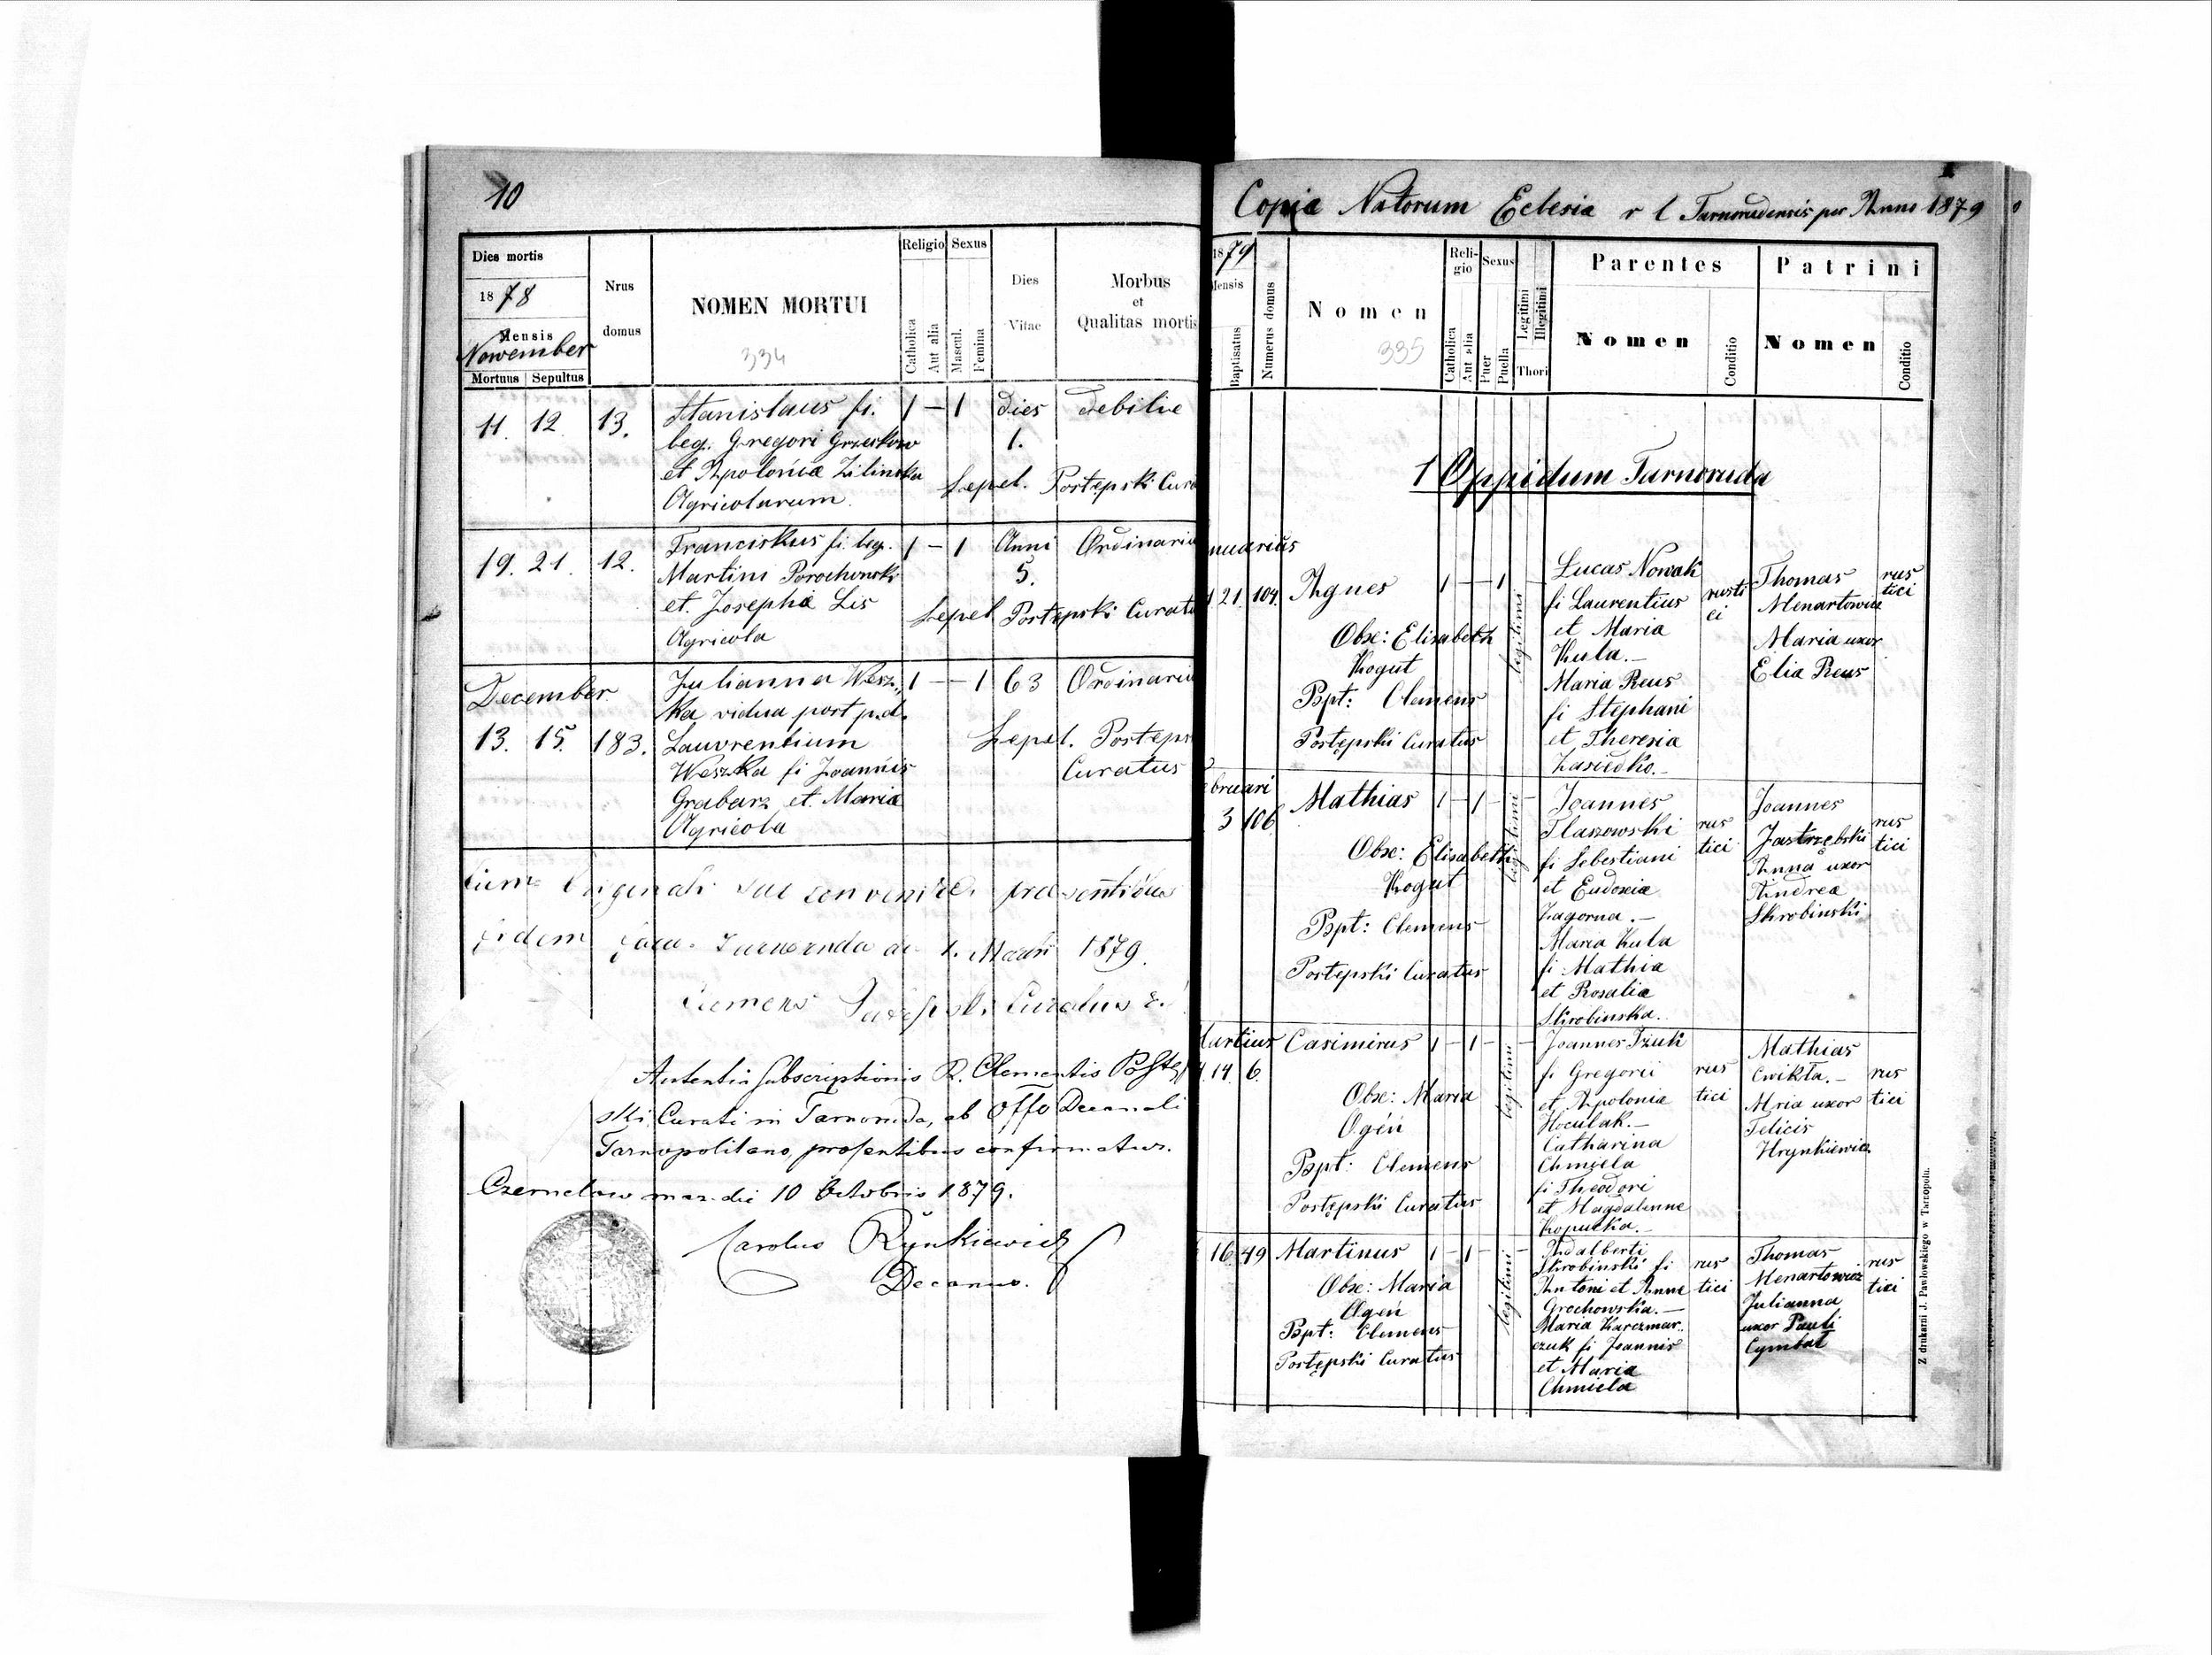 10
Dies mortis
1878
Mensis
November
Mortuus Sepultus
Nrus domus
NOMEN MORTUI
334
Religio
Catholica
Aut alia
Sexus
Mascul.
Femina
Dies Vitae
Morbus
et
Qualitas mortis
11. 12. 13. Stanislaus fi. 1 — 1 Dies Debilie
leg. Gregori Grzeskow 1.
et Apolonia Zilinska
Sepel. Postępski Cura
Agricolarum.
19. 21. 12. Franciskus fi. leg. 1 — 1 Anni Ordinaria
Martini Porochowski 5.
et. Josepha Lis
Sepel Postępski Curatu
Agricola
December
13. 15. 183. Julianna Wesz„ 1 — — 1 63 Ordinaria
ka vidua post p.d.
Lauvrentium Sepel. Postęps
Weszka fi Joannis Curatus
Grabarz et. Maria
Agricola
Cum Originali convenire presentibus
fidem Tarnoruda 1. 1879.
Clemens Postępski Curatus
Subscriptionis R. Clementis Postęp
ski Curati in Tarnoruda, ab Offo Decanali
Tarnopolitano, prasentibus confirmatur.
Czernelow maz. die 10 Octobris 1879.
Carolus Rynkiewicz
Decanus.
Copia Natorum Eclesia r l Tarnorudensis per Anno 1879
1879
Mensis
Baptisatus
Numerus domus
Nomen
335
Religio
Catholica
Aut alia
Sexus
Puer
Puella
Legitimi
Illegitimi
Thori
Parentes
Nomen
Conditio
Patrini
Nomen
Conditio
1 Oppidum Tarnoruda
nuarius
21. 104. Agnes 1 — — 1 legitimi
Obse: Elisabeth
Kogut
Bpt: Clemens
Postępski Curatus
Lucas Nowak
fi Laurentius
et Maria
Kula.—
Maria Reus
fi Stephani
et Theresia
Zasiedko.—
rusti
ci
Thomas
Menartowicz
Maria uxor
Elia Reus
rus
tici
bruari
3 106 Mathias 1 — 1 — legitimi
Obse: Elisabeth
Kogut
Bpt: Clemens
Postępski Curatus
Joannes
Tlaszowski
fi Sebestiani
et Eudoxia
Zagorna.—
Maria Kula
fi Mathia
et Rosalia
Skrobinska.
rus
tici
Joannes
Jastrzębski
Anna uxor
Andrea
Skrobinski
rus
tici
artius
14. 6. Casimirus 1 — 1 — legitimi
Obse: Maria
Ogeń
Bpt: Clemens
Postępski Curatus
Joannes Dzuk
fi Gregorii
et Apolonia
Hoculak.—
Catharina
Chmiela
fi Theodori
et Magdalenne
Koputka.—
rus
tici
Mathias
Cwikła.—
Mria uxor
Felicis
Hrynkiewicz
rus
tici
16. 49 Martinus 1 — 1 — legitimi
Obse: Maria
Ogeń
Bpt: Clemens
Postępski Curatus
Adalberti
Skrobinski fi
Antoni et Anne
Grochowska.—
Maria Karczmar„
czuk fi Joannis
et Maria
Chmiela
rus
tici
Thomas
Menartowicz
Julianna
uxor Pauli
Cymbal
rus
tici
Z drukarni J. Pawłowskiego w Tarnopolu.